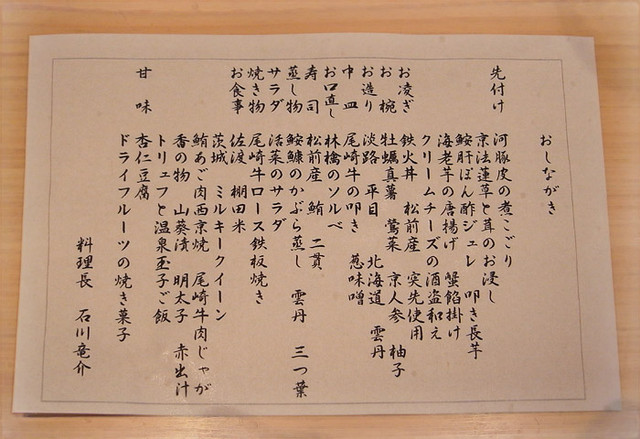 おしながき
先付け 河豚皮の煮こごり
京法蓮草と茸のお浸し
鮟肝ぽん酢ジュレ 叩き長芋
海老芋の唐揚げ 蟹餡掛け
クリームチーズの酒盗和え
お凌ぎ 鉄火丼 松前産 突先使用
お椀 牡蠣真薯 鶯菜 京人参 柚子
お造り 淡路 平目 北海道 雲丹
中皿 尾崎牛の叩き 葱味噌
お口直し 林檎のソルベ
寿司 松前産 鮪 二貫
蒸し物 鮟鱇のかぶら蒸し 雲丹 三つ葉
サラダ 活菜のサラダ
焼き物 尾崎牛ロース鉄板焼き
お食事 佐渡 棚田米
茨城 ミルキークイーン
鮪あご肉西京焼 尾崎牛肉じゃが
香の物 山葵漬 明太子 赤出汁
トリュフと温泉玉子ご飯
甘味 杏仁豆腐
ドライフルーツの焼き菓子
料理長 石川竜介